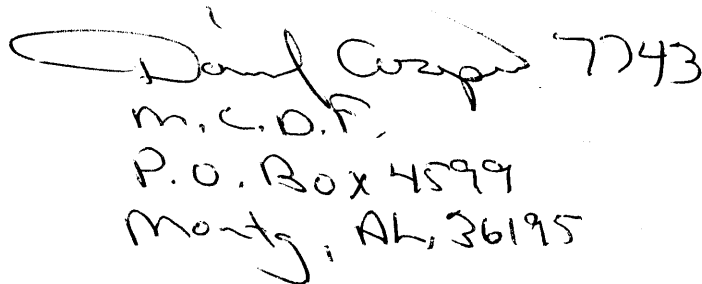 David Cooper 7743
M.C.D.F.
P.O. Box 4599
Montg, AL, 36195